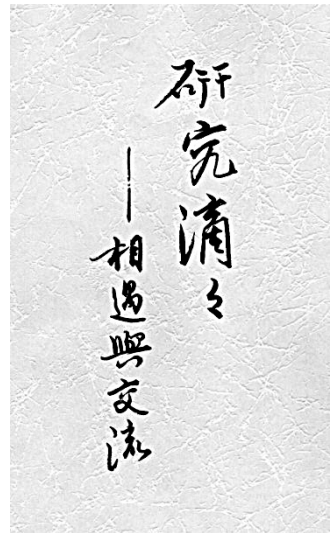 研究滴々
——相遇與交流